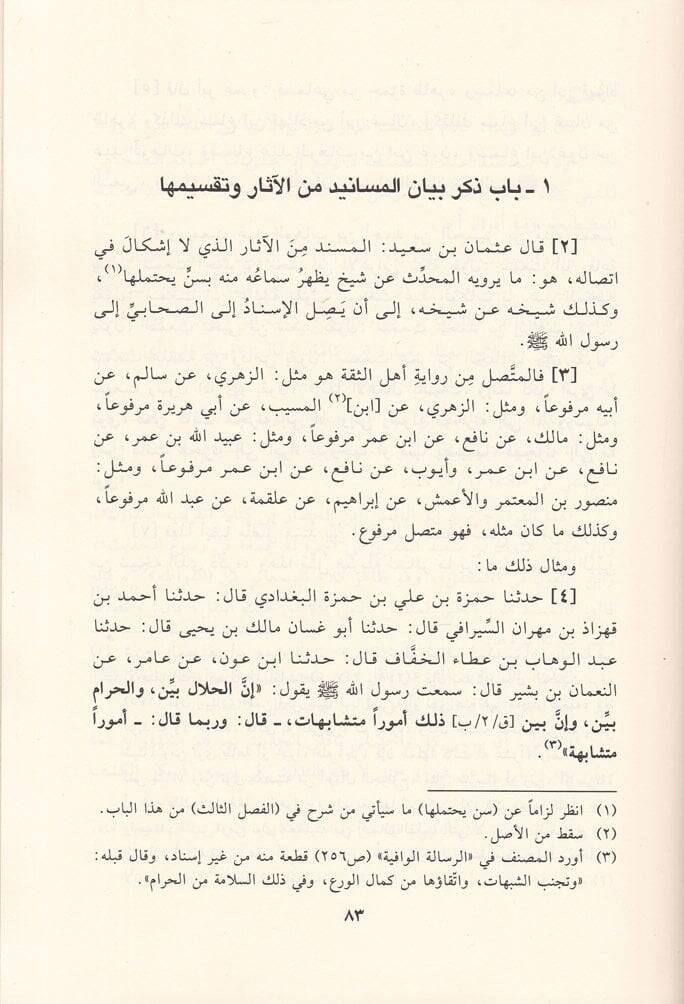 ١ - باب ذكر بيان المسانيد من الآثار وتقسيمها
[٢] قال عثمان بن سعيد: المسند مِنَ الآثار الذي لا إشكالَ في
اتصاله، هو: ما يرويه المحدِّث عن شيخ يظهرُ سماعُه منه بسنٍّ يحتملها(١)،
وكذلك شيخه عن شيخه، إلى أن يَصِل الإسنادُ إلى الصحابيِّ إلى
رسول الله ﷺ.
[٣] فالمتَّصل مِن روايةِ أهل الثقة هو مثل: الزهري، عن سالم، عن
أبيه مرفوعاً، ومثل: الزهري، عن [ابن](٢) المسيب، عن أبي هريرة مرفوعاً،
ومثل: مالك، عن نافع، عن ابن عمر مرفوعاً، ومثل: عبيد الله بن عمر، عن
نافع، عن ابن عمر، وأيوب، عن نافع، عن ابن عمر مرفوعاً، ومثل:
منصور بن المعتمر والأعمش، عن إبراهيم، عن علقمة، عن عبد الله مرفوعاً،
وكذلك ما كان مثله، فهو متصل مرفوع.
ومثال ذلك ما:
[٤] حدثنا حمزة بن علي بن حمزة البغدادي قال: حدثنا أحمد بن
قهزاذ بن مهران السِّيرافي قال: حدثنا أبو غسان مالك بن يحيى قال: حدثنا
عبد الوهاب بن عطاء الخفَّاف قال: حدثنا ابن عون، عن عامر، عن
النعمان بن بشير قال: سمعت رسول الله ﷺ يقول: «إنَّ الحلال بيِّن، والحرام
بيِّن، وإنَّ بين [ق/٢/ب] ذلك أموراً متشابهات، ـ قال: وربما قال: ـ أموراً
متشابهة»(٣).
(١) انظر لزاماً عن (سن يحتملها) ما سيأتي من شرح في (الفصل الثالث) من هذا الباب.
(٢) سقط من الأصل.
(٣) أورد المصنف في «الرسالة الوافية» (ص٢٥٦) قطعة منه من غير إسناد، وقال قبله:
«وتجنب الشبهات، واتّقاؤها من كمال الورع، وفي ذلك السلامة من الحرام».
٨٣